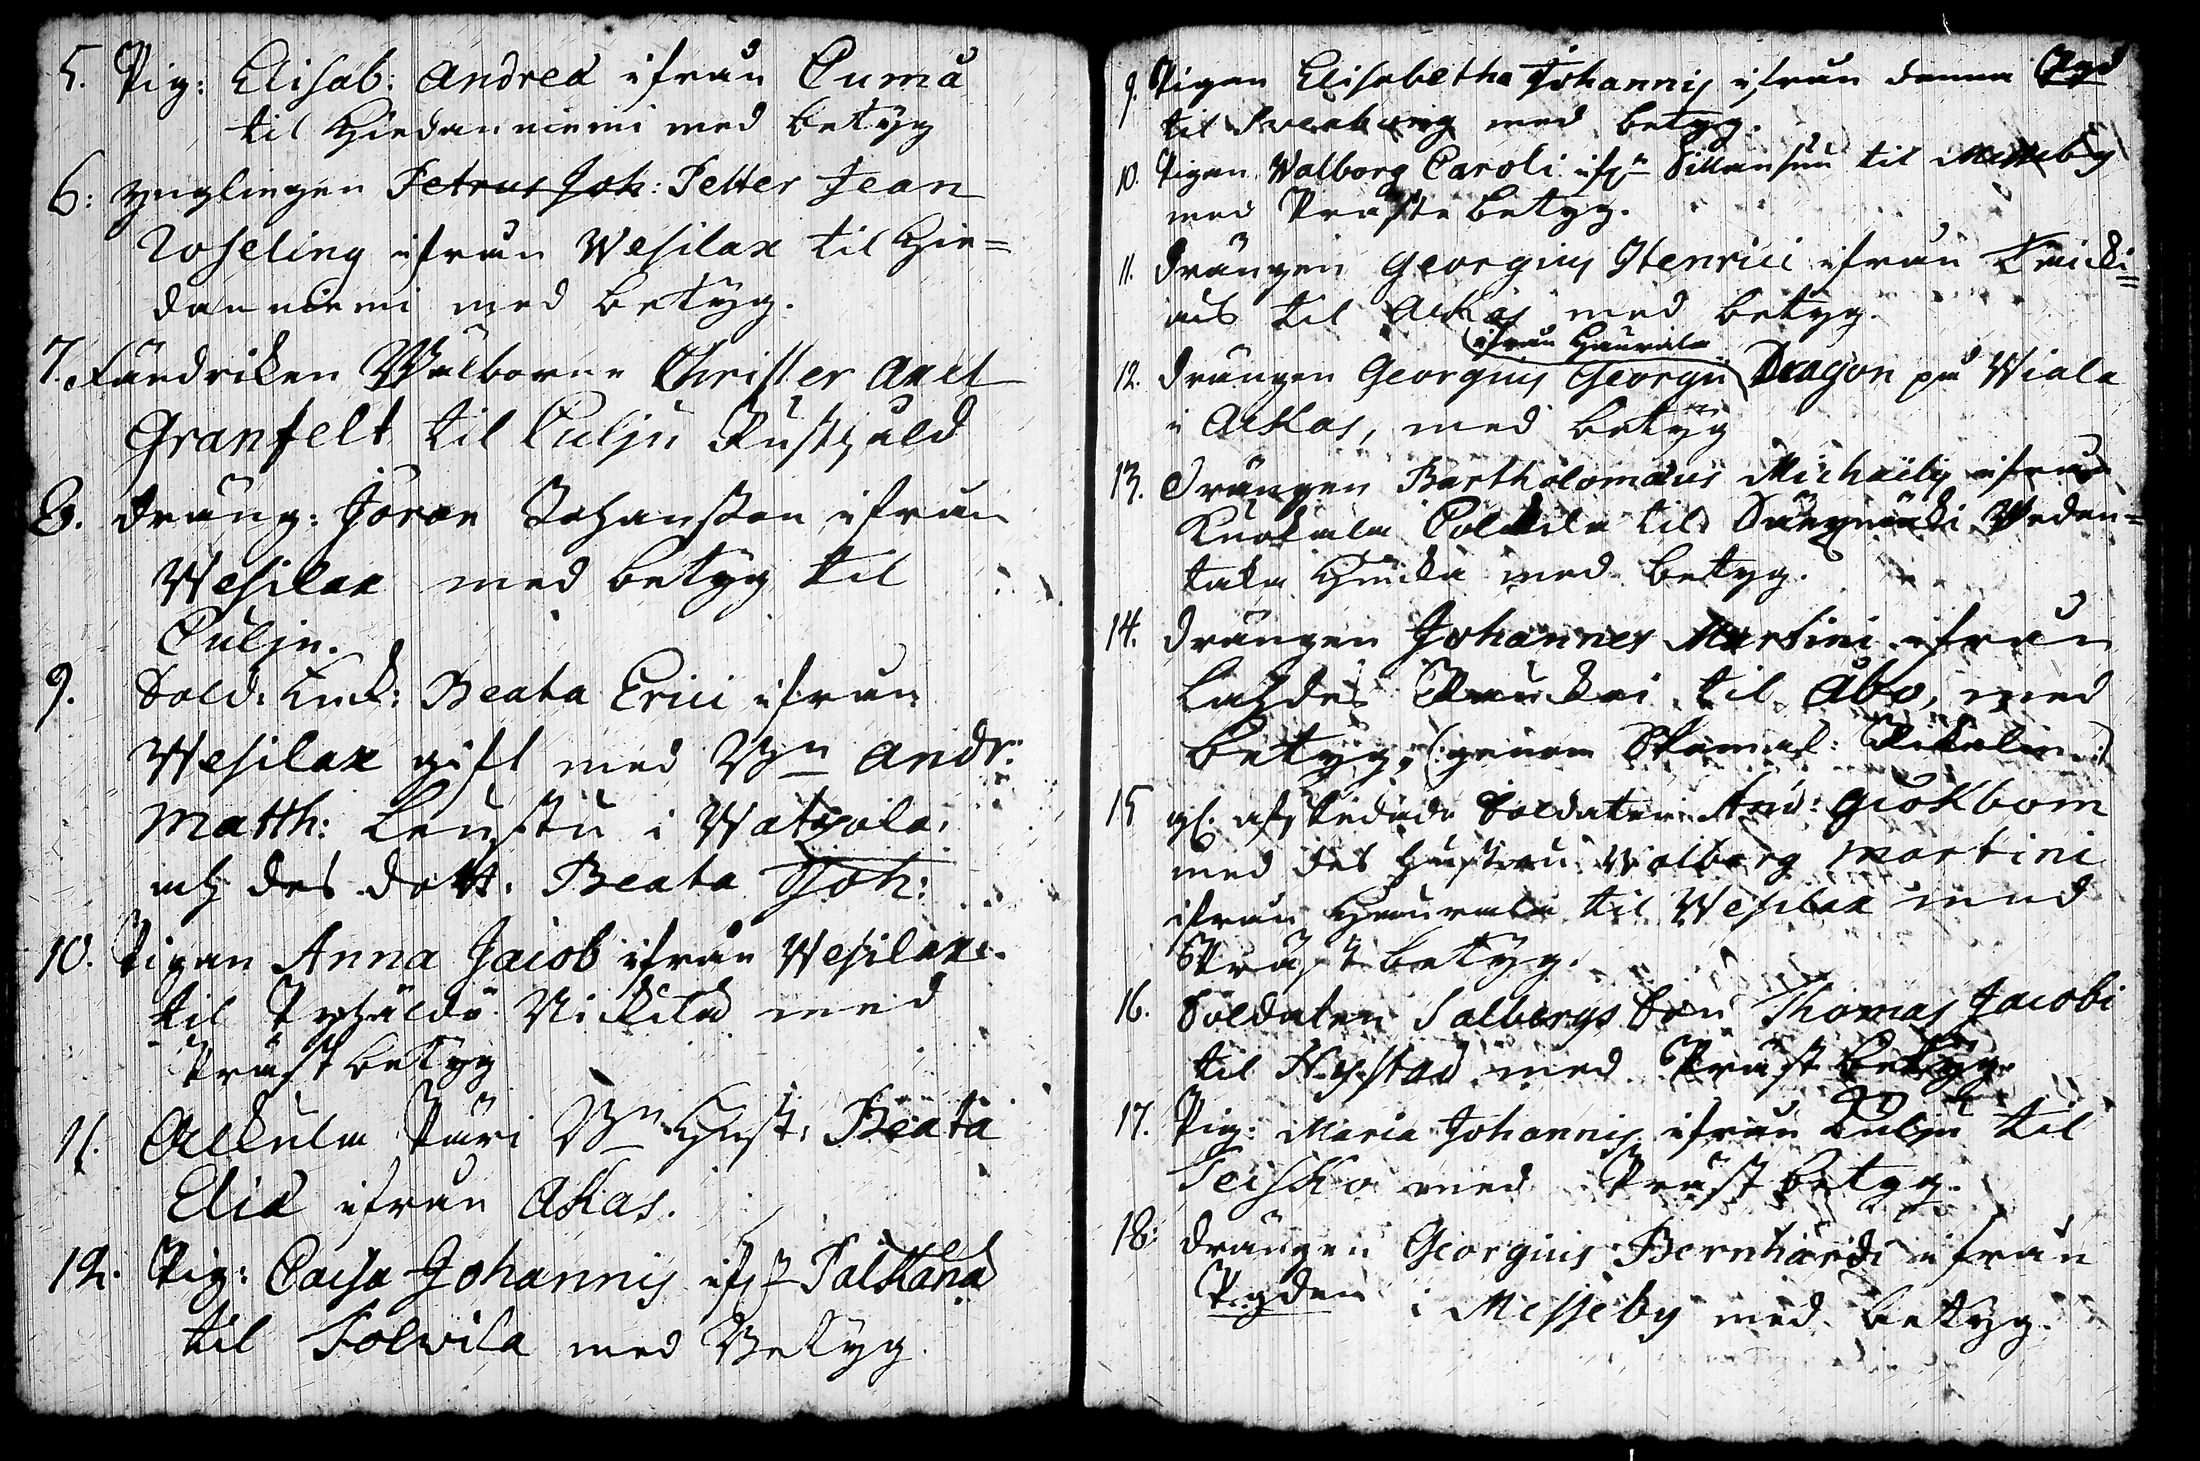 5. Pig: Elisab: Andreæ ifrån Cumå
til Hiedanniemi med betyg
6: Ynglingen Petrus Joh: Petter Jean
Roseling ifrån Wesilax til Hie=
danniemi med betyg.
7. Fändriken Wälborne Christer Axel
Granfelt til Culju Rusthåld
8. Dräng: Jöran Johansson ifrån
Wesilax med betyg til
Culju.
9. Sold: Enk: Beata Erici ifrån
Wesilax gift med Bn Andr:
Matth: i Watiala,
och des dott. Beata Joh:
10. Pigan Anna Jacob ifrån Wesilax
til Nickilä med
Prästbetyg
11. Alkula Päri Bn Hust: Beata
Eliæ ifrån Akas.
12. Pig: Caisa Johannis ifrn Palkänä
til Tolvila med Betyg.
9. Pigan Elisabetha Johannis ifrån denna
til Sveaborg med betyg.
10. Pigan Walborg Caroli ifrn til Messeby
med Präste betyg.
11. Drängen Georgius Henrici ifrån
til Ackas med betyg.
ifrån Haurala
12. Drängen Georgius Georgii Dragon på Wiala
i Ackas, med betyg
13. Drängen Bartholomæus Michaëlis ifrån
Kuokala til Säexmäki Weden=
taka med betyg.
14. Drängen Johannes Martini ifrån
Lahdes til Åbo, med
betyg, (genom
15 gl. afskedade Soldaten And: Giökbom
med des hustru Walborg Martini
ifrån Haurala til Wesilax med
Präst betyg.
16. Soldaten Salbergs Son Thomas Jacobi
til Nystad med Präst betyg.
17. Pig: Maria Johannis ifrån Culju til
Teisko med Präst betyg.
18: Drängen Georgius Bernhardi ifrån
i Messeby med betyg.